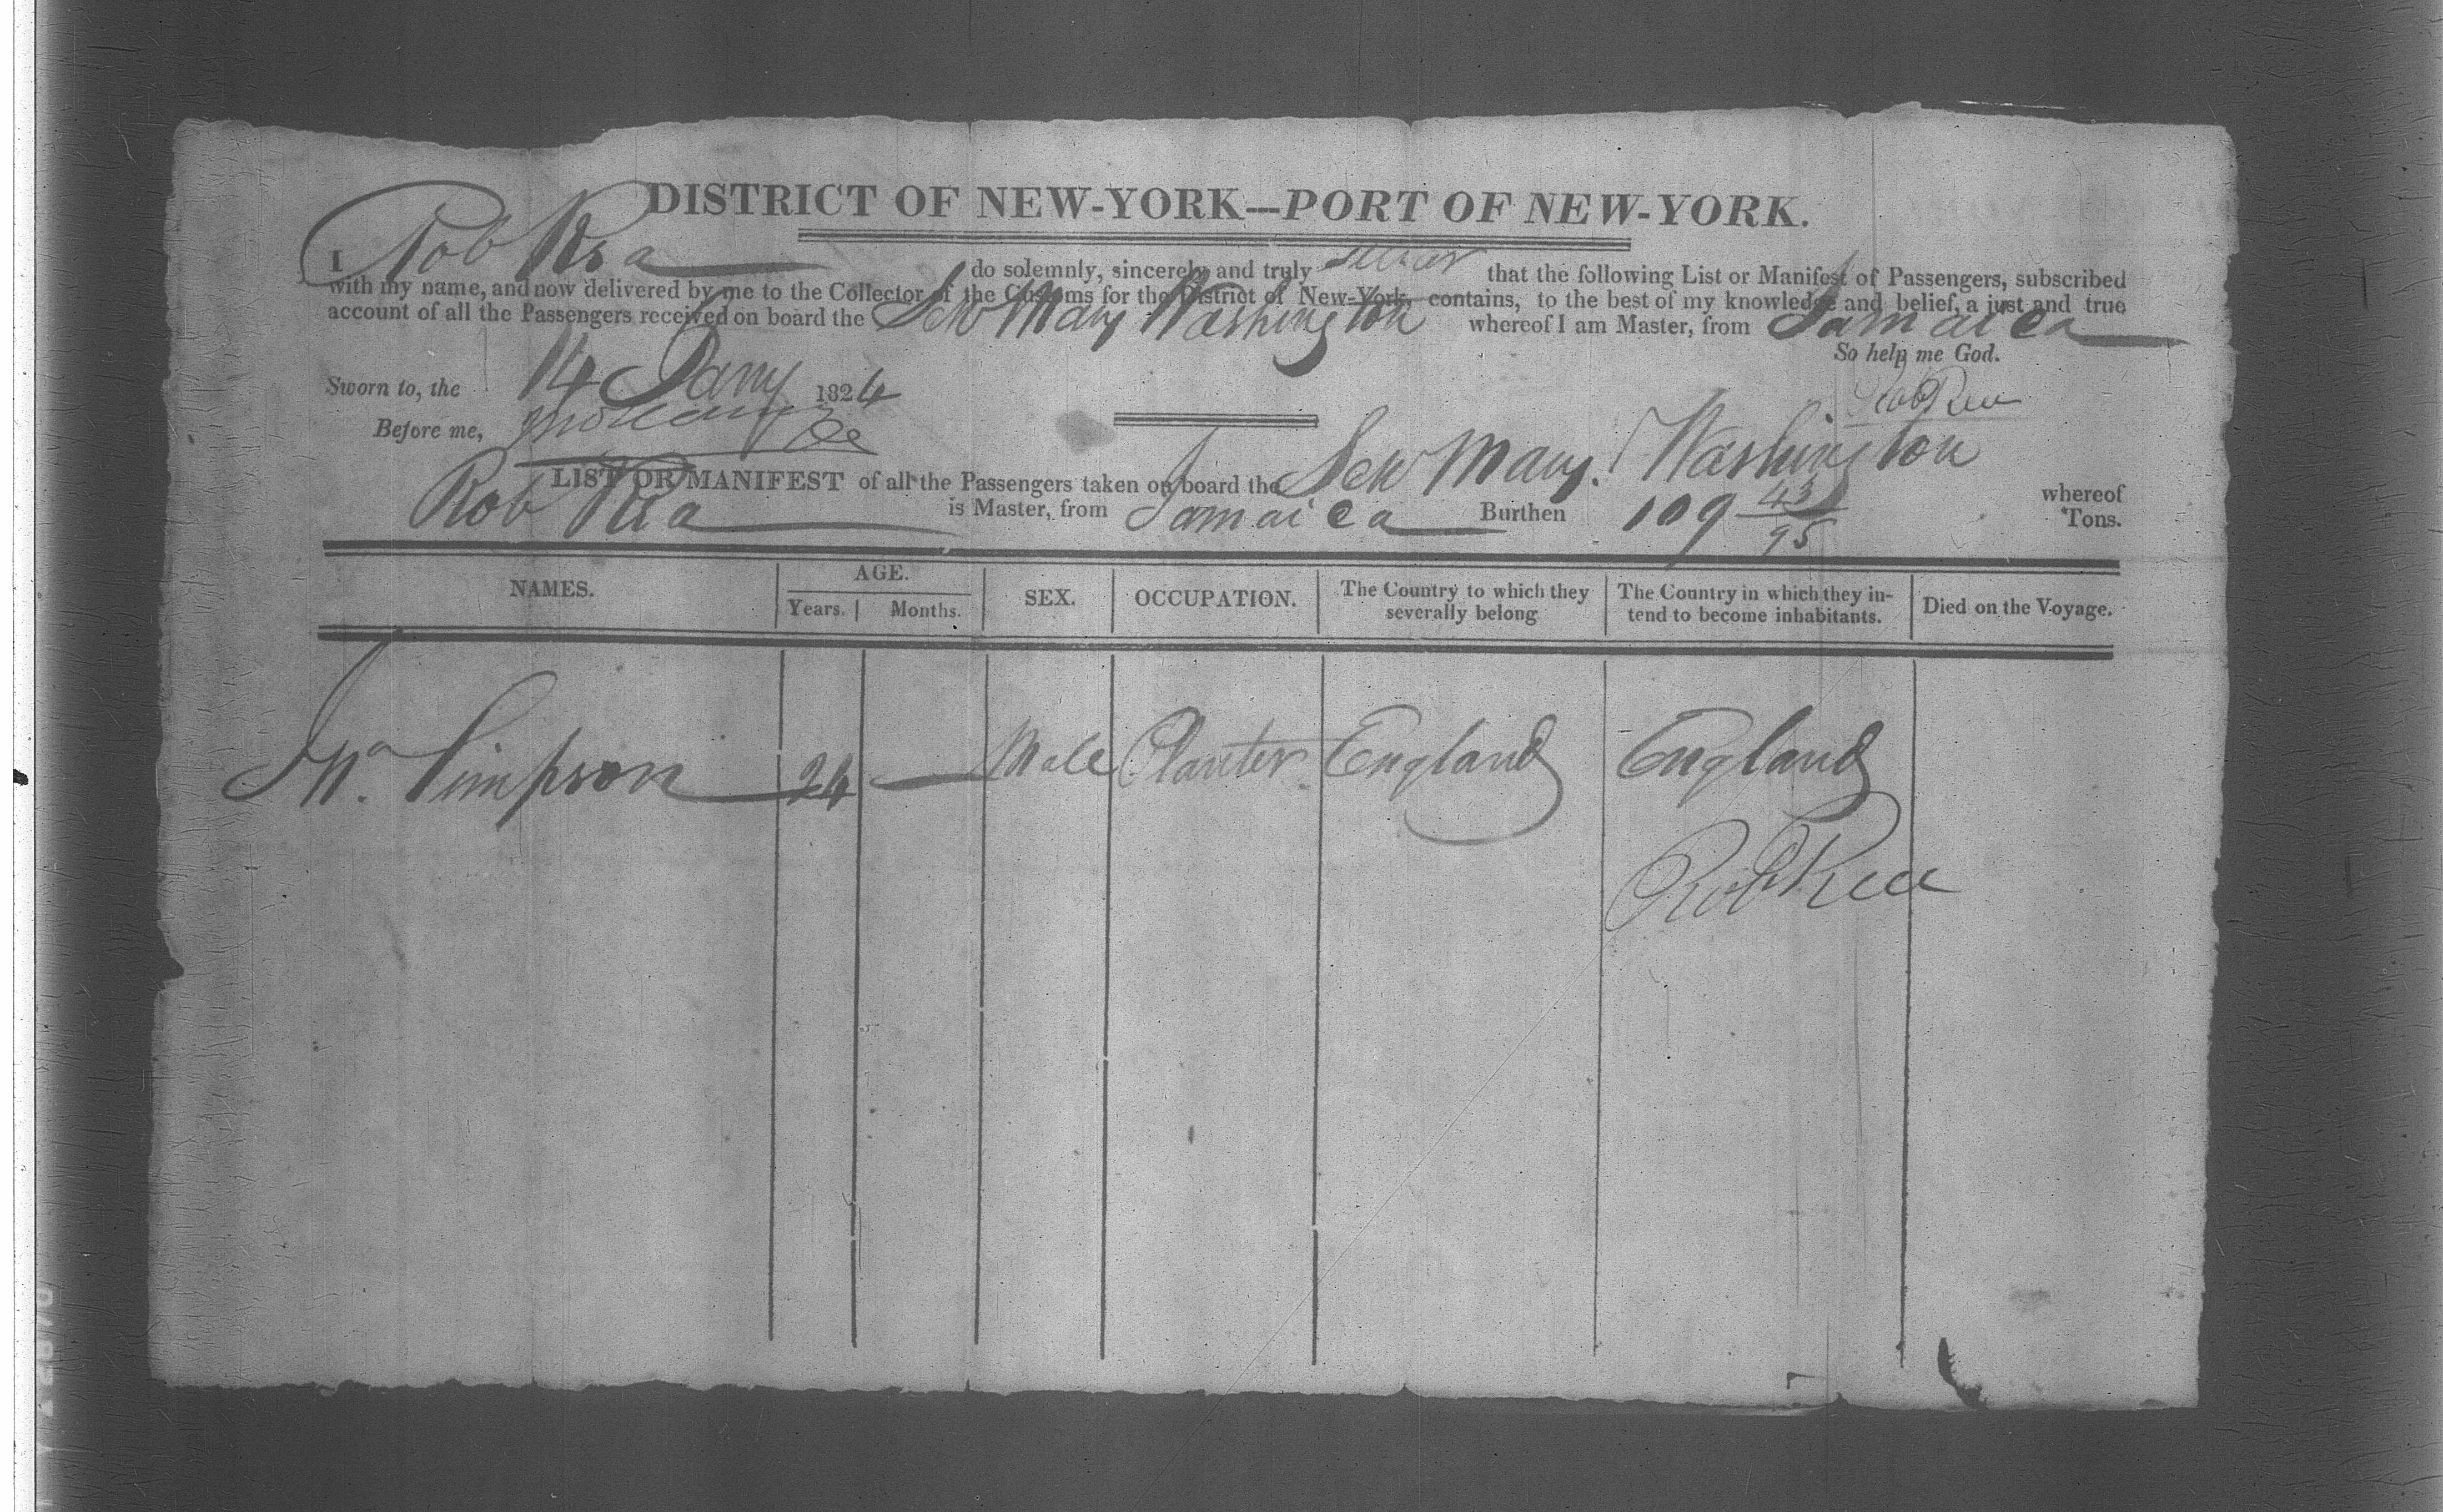 DISTRICT OF NEW-YORK—PORT OF NEW-YORK.
I Rob Rea do solemnly, sincerely and truly swear that the following List or Manifest of Passengers, subscribed
with my name, and now delivered by me to the Collector of the Customs for the District of New-York, contains, to the best of my knowledge and belief, a just and true
account of all the Passengers received on board the Schr Mary Washington whereof I am Master, from Jamaica
So help me God.
Sworn to, the 14 Jany 1824
Rob Rea
Before me,
LIST OR MANIFEST of all the Passengers taken on board the Schr Mary Washington whereof
Rob Rea is Master, from Jamaica Burthen 109 43/95 Tons.
NAMES. AGE. SEX. OCCUPATION. The Country to which they severally belong The Country in which they in-tend to become inhabitants. Died on the Voyage.
Years. Months.
Simpson 24 — Male Planter England England
Rob Rea